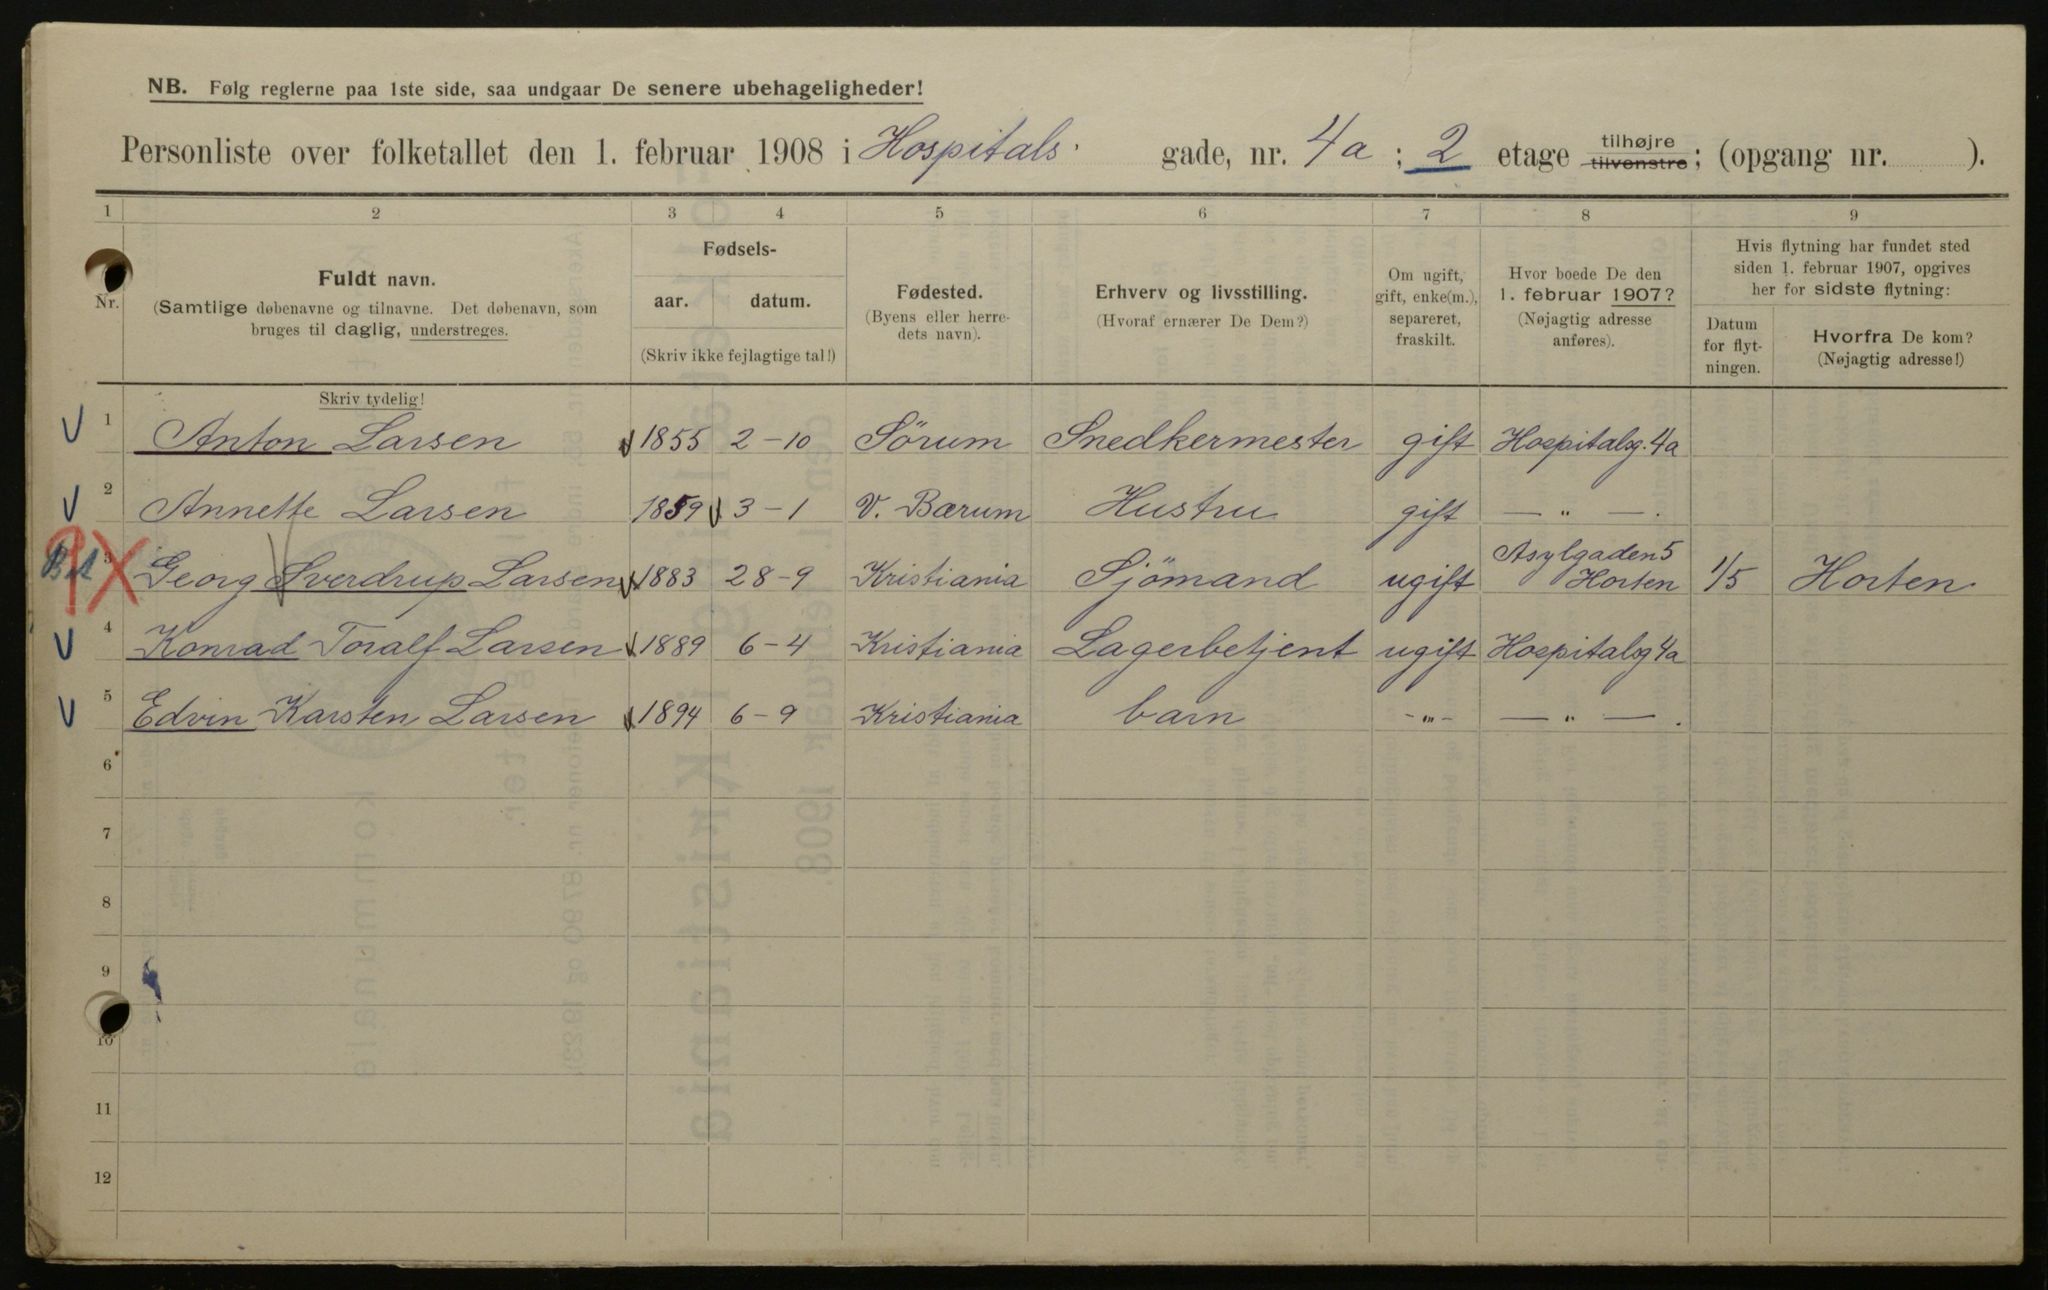 NB. Følg reglerne paa 1ste side, saa undgaar De senere ubehageligheder!
Personliste over folketallet den 1. februar 1908 i Hospitals gade, nr. 4a ; 2 etage tilhøjre tilvenstre ; (opgang nr. ).
1 2 3 4 5 6 7 8 9
Nr.
Fuldt navn.
(Samtlige døbenavne og tilnavne. Det døbenavn, som
bruges til daglig, understreges.
Fødsels-
aar. datum.
(Skriv ikke fejlagtige tal!)
Fødested.
(Byens eller herre-
dets navn).
Erhverv og livsstilling.
(Hvoraf ernærer De Dem?)
Om ugift,
gift, enke(m.),
separeret,
fraskilt.
Hvor boede De den
1. februar 1907?
(Nøjagtig adresse
anføres).
Hvis flytning har fundet sted
siden 1. februar 1907, opgives
her for sidste flytning:
Datum
for flyt-
ningen.
Hvorfra De kom?
(Nøjagtig adresse!)
Skriv tydelig!
1 Anton Larsen 1855 2-10 Sørum Snedkermester gift Hospitalsg. 4a
2 Annette Larsen 1859 3-1 V. Bærum Hustru gift — „ —.
3 Georg Sverdrup Larsen 1883 28-9 Kristiania Sjömand ugift Asylgaden 5 Horten 1/5 Horten
4 Konrad Toralf Larsen 1889 6-4 Kristiania Lagerbetjent ugift Hospitalsg 4a
5 Edvin Karsten Larsen 1894 6-9 Kristiania barn -„- — „ —.
6
7
8
9
10
11
12